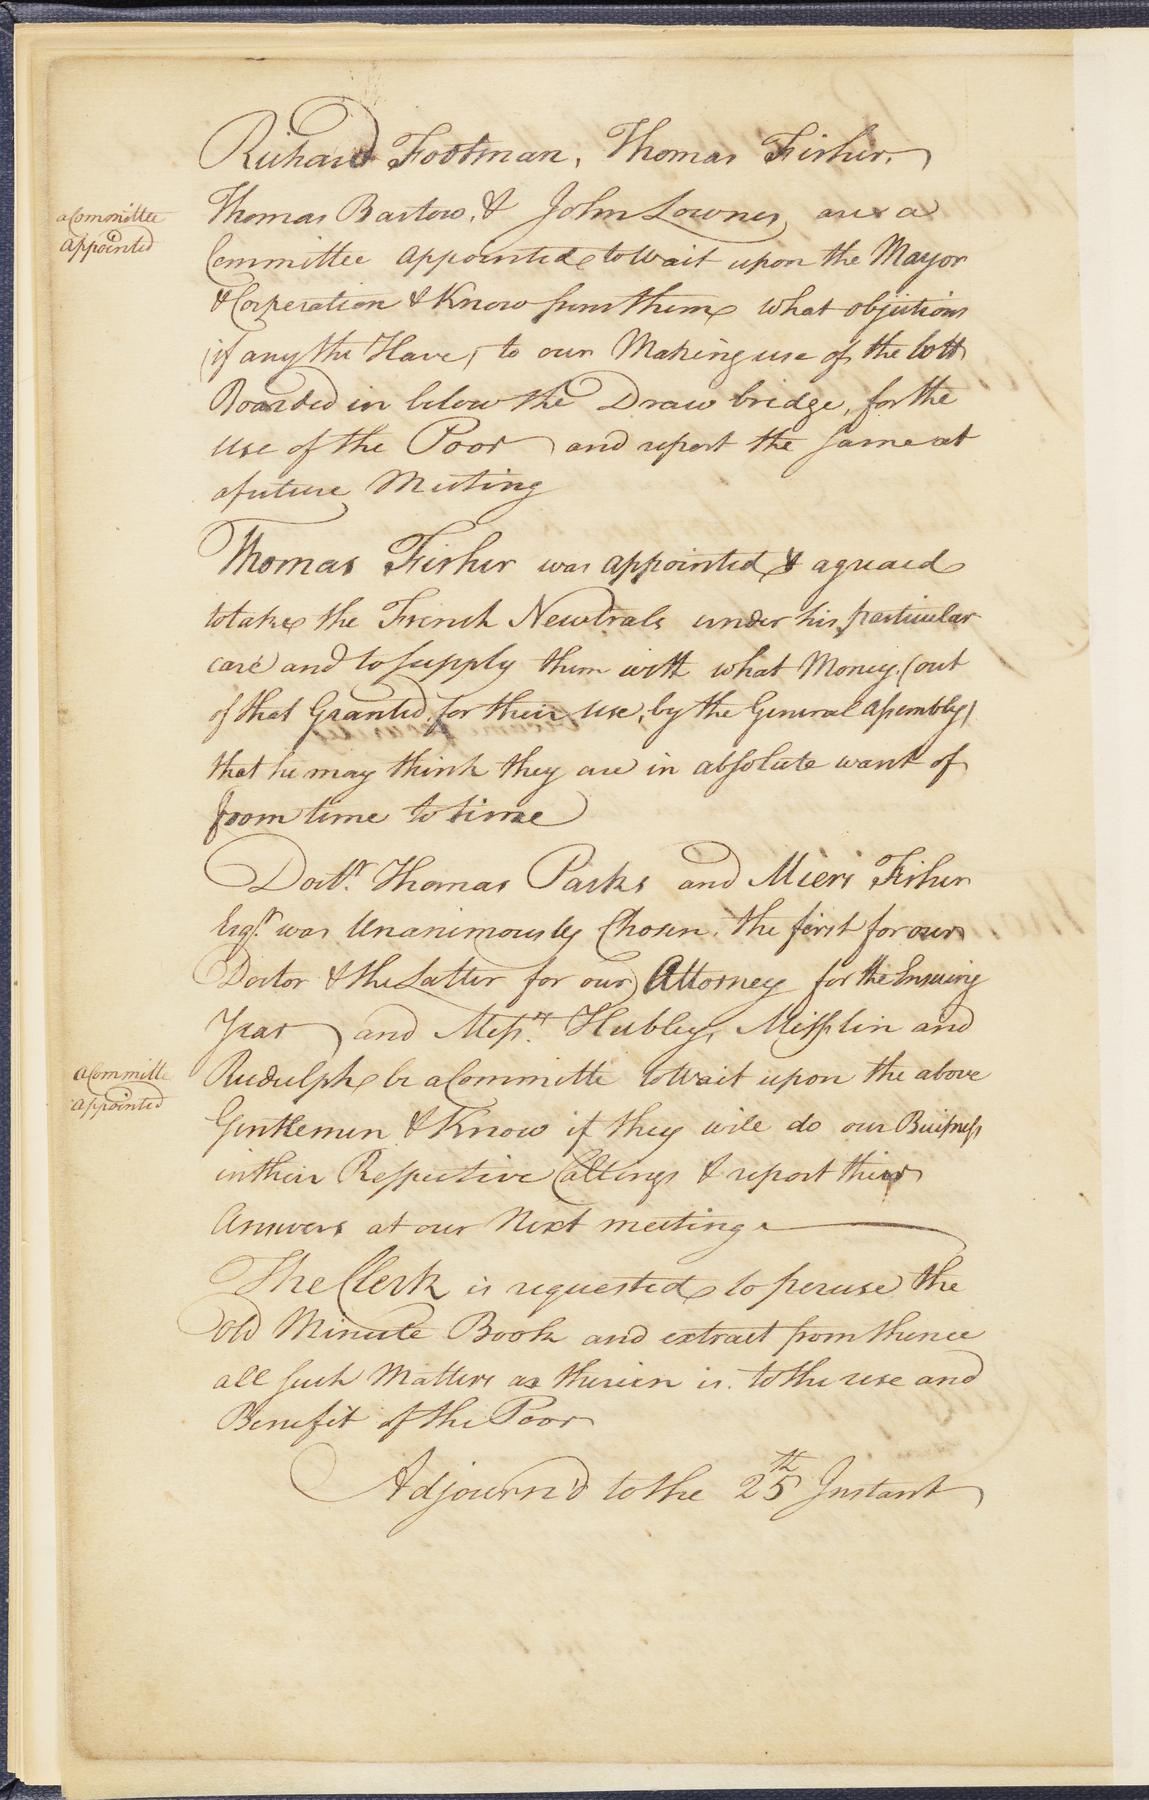 Richard Footman, Thomas Fisher,
a Committee
appointed
Thomas Bartow, & John Lownes, are a
Committee appointed to Wait upon the Mayor
& Corperation & Know from them what objections
(if any the Have) to our Making use of the lott
Boarded in below the Draw bridge, for the
use of the Poor and report the same at
a future Meeting
Thomas Fisher was appointed & agreaed
to take the French Newtrals under his particular
care and to supply them with what Money (out
of that Granted for their use, by the General Assembly)
that he may think they are in absolute want of
from time to time
Doctr. Thomas Parks and Miers Fisher
Esqr. was Unanimously Chosen, the first for our
Doctor & the Latter for our Attorney for the Ensuing
Year and Messrs. Hubley, Mifflin and
a Committe
appointed
Rudulph be a Committe to Wait upon the above
Gentlemen & Know if they will do our Buisness
in their Respective Callings & report their
Answers at our Next meeting
The Clerk is requested to peruse the
old Minute Book and extract from thence
all such Matters as therein is to the use and
Benefit of the Poor
Adjourn'd to the 25th Instant